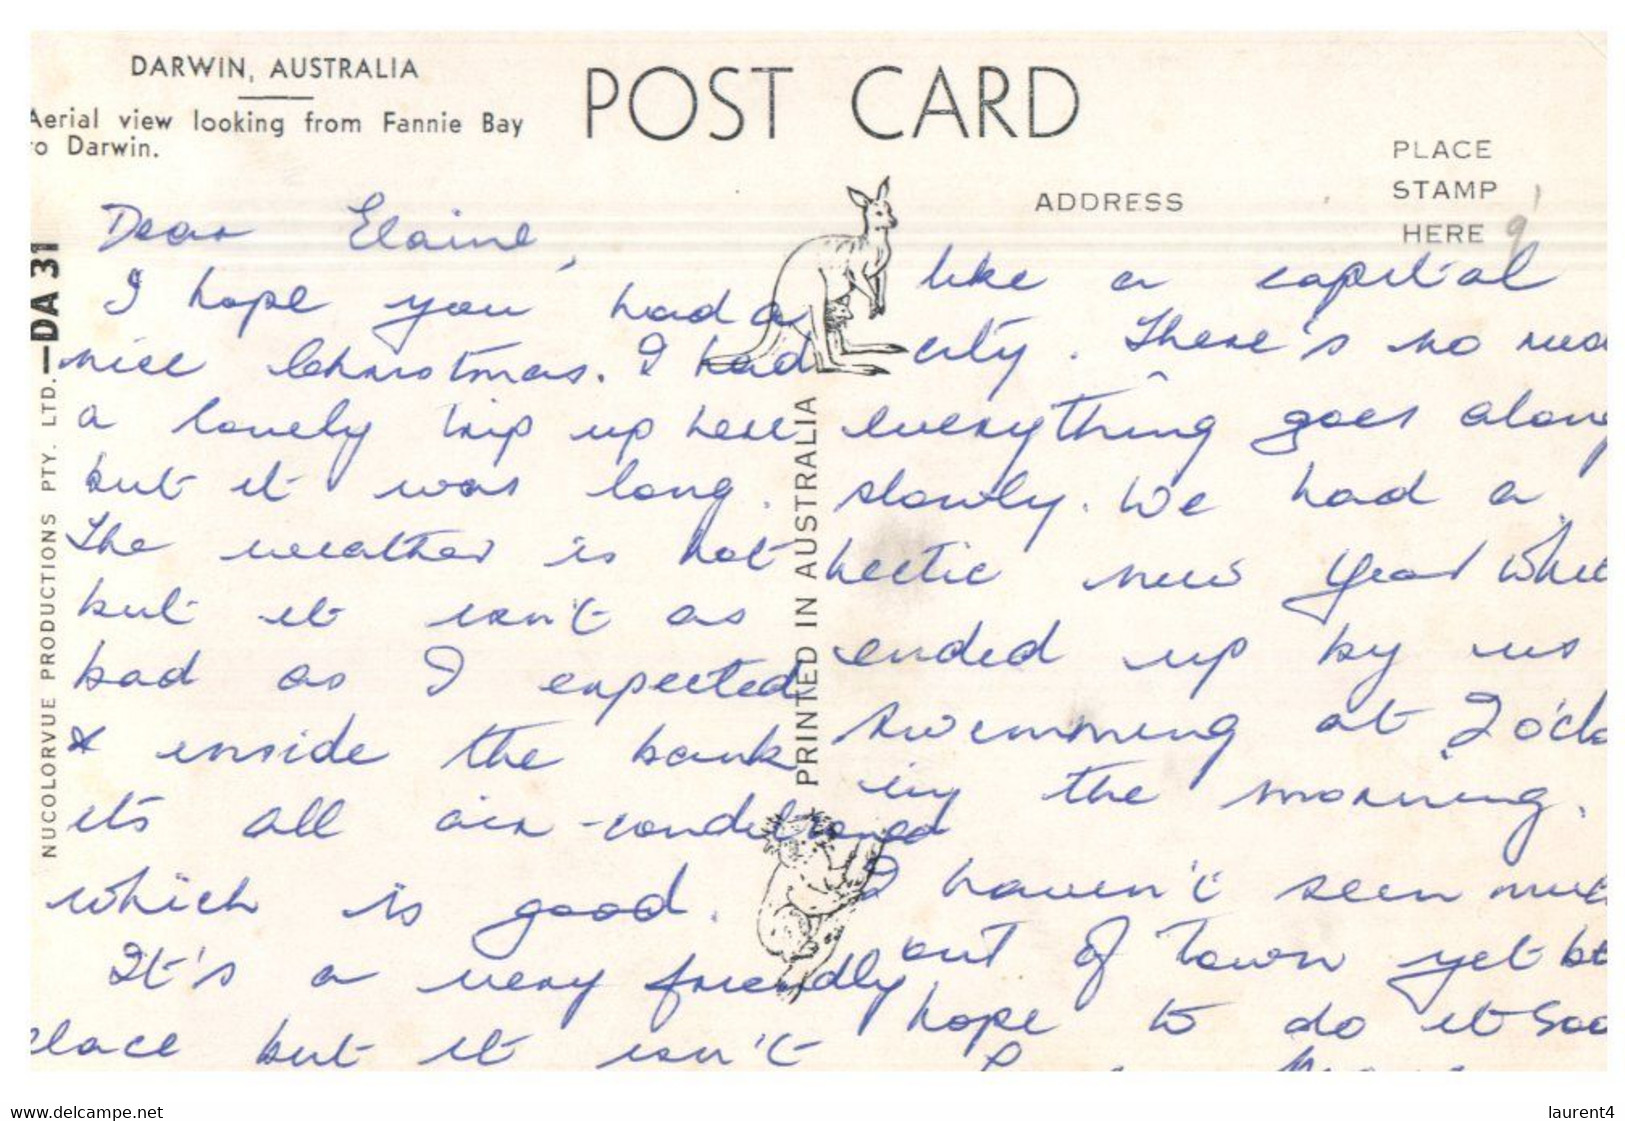 DARWIN, AUSTRALIA
Aerial view looking from Fannie Bay
to Darwin.
POST CARD
PLACE
STAMP
HERE
ADDRESS
DA 31
NUCOLORVUE PRODUCTIONS PTY. LTD.
PRINTED IN AUSTRALIA
Dear Elaine,
I hope you had a
nice Christmas. I had
a lovely trip up here
but it was long.
The weather is hot
but it isn't as
bad as I expected
& inside the bank
its all air-conditioned
which is good.
It's a very friendly
place but it isn't
like a capital
city. There's no
everything goes along
slowly. We had a
hectic new year
ended up by us
swimming at 2 o'clo
in the morning.
I haven't seen muc
out of town yet
hope to do it soo
www.delcampe.net
laurent4